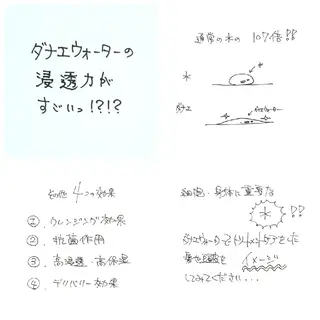 ダナエウォーターの
浸透力が
すごいっ!?!?
通常の水の 10万倍!!
水
水
ダナエ
ダナエウォーター
4つの効果
① クレンジング効果
② 抗菌作用
③ 高浸透・高保湿
④ デリバリー効果
細胞・身体に重要な
水 !!
ダナエウォーターでトリートメントケアをした
イメージ
してみてください...